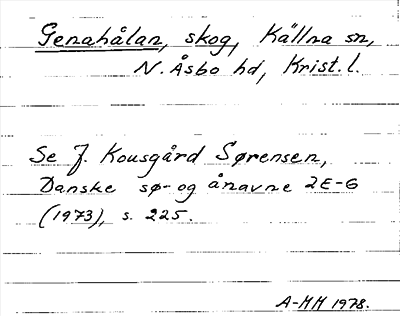 Genahålan, skog, Källna sn,
N. Åsbo hd, Krist. l.
Se J. Kousgård Sørensen,
Danske sø- og ånavne 2E-G
(1973), s. 225.
A-MH 1978.